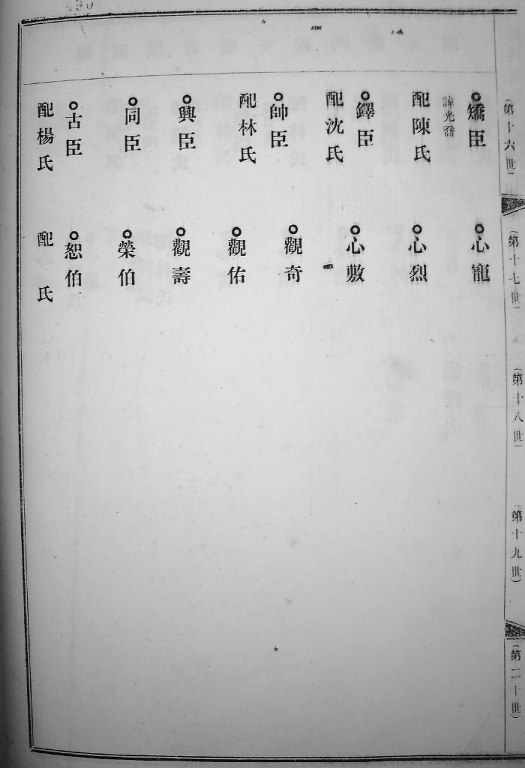 第十六世
第十七世
第十八世
第十九世
第二十世
矯臣
諱光
配陳氏
鐸臣
配沈氏
帥臣
配林氏
興臣
同臣
古臣
配楊氏
心寵
心烈
心敷
觀奇
觀佑
觀壽
榮伯
恕伯
配 氏